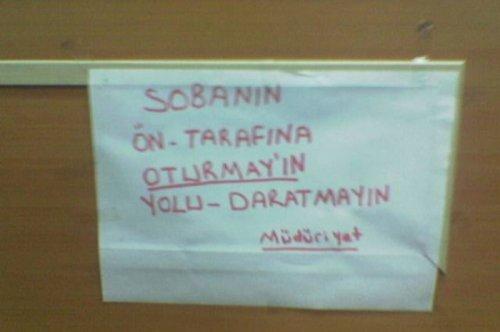 SOBANIN
ÖN-TARAFINA
OTURMAY'IN
YOLU-DARATMAYIN
Müdüriyat